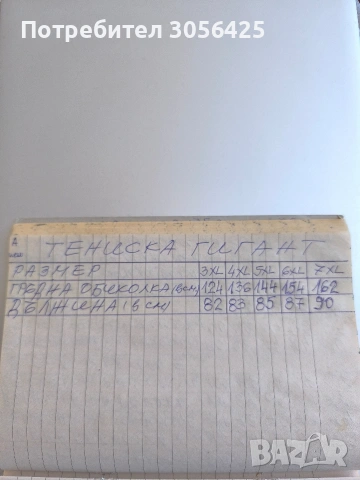 Потребител 3056425
ТЕНИСКА ГИГАНТ
РАЗМЕР 3XL 4XL 5XL 6XL 7XL
ГРЕДНА ОБИКОЛКА (всм) 124 136 144 154 162
ДЪЛЖИНА (в см) 82 83 85 87 90
BAZAR